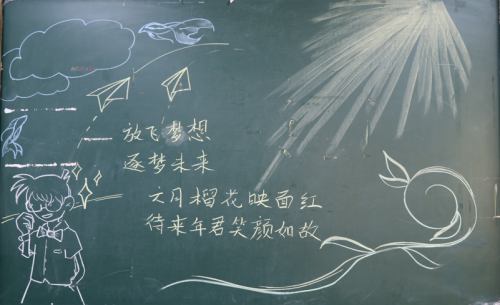 放飞梦想
逐梦未来
六月榴花映面红
待来年君笑颜如故